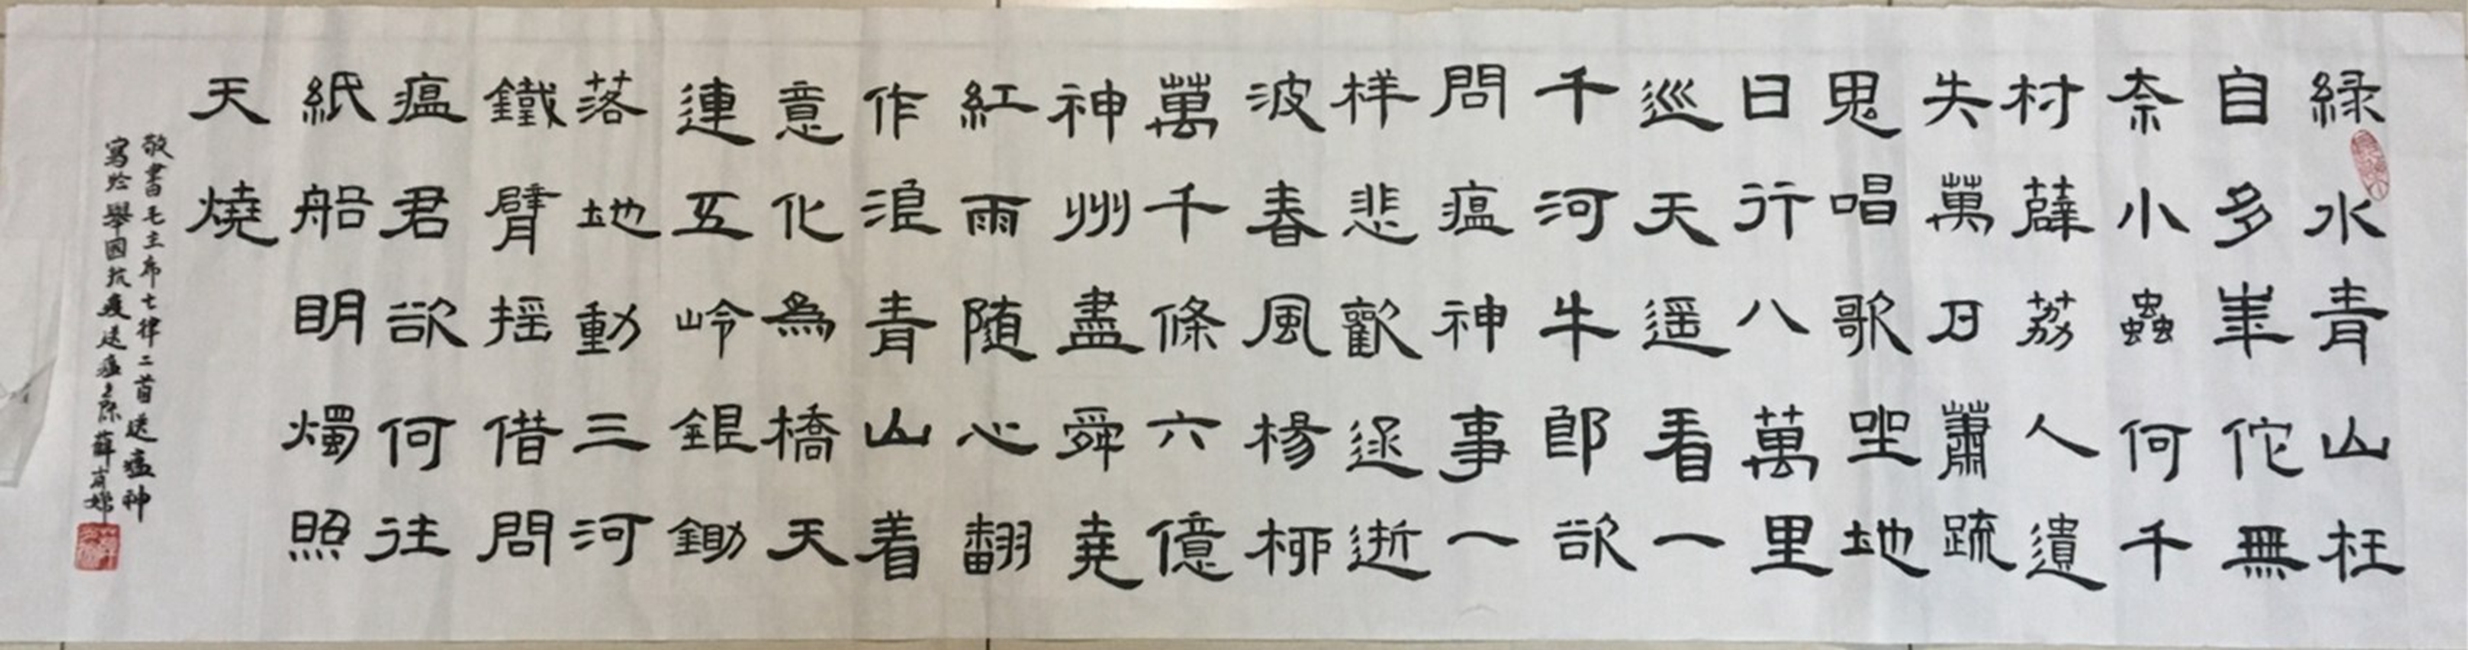 緑水青山枉
自多崋佗無
奈小蟲何千
村薜荔人遺
失萬戶蕭疏
鬼唱歌坐地
日行八萬里
巡天遥看一
千河牛郎欲
問瘟神事一
样悲歡逐逝
波春風楊柳
萬千條六億
神州盡舜堯
紅雨随心翻
作浪青山着
意化為橋天
連五岭銀鋤
落地動三河
鐵臂摇借問
瘟君欲何往
紙船明燭照
天燒
敬書毛主席七律二首送瘟神
寫於舉國抗疫送瘟之際薛